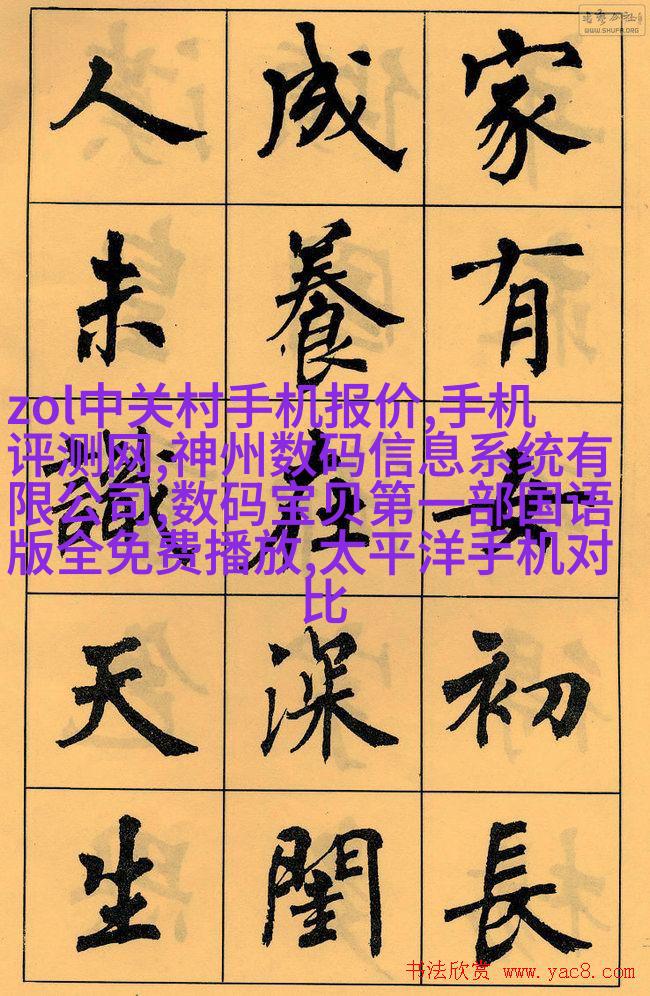 书艺公社
WWW.SHUFA.ORG
家有女初長
成養在深閨
人未識天生
zol中关村手机报价,手机
评测网,神州数码信息系统有
限公司,数码宝贝第一部国语
版全免费播放,太平洋手机对
比
书法欣赏 www.yac8.com